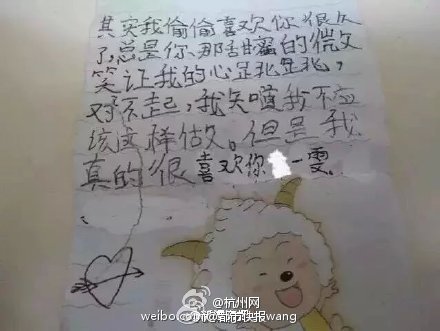 其实我偷偷喜欢你很久
了,总是你那甜蜜的微
笑让我的心
对不起,我知道我不应
该这样做。但是我
真的很喜欢你 一雯
@杭州网
weibo.co @都市快报 wang